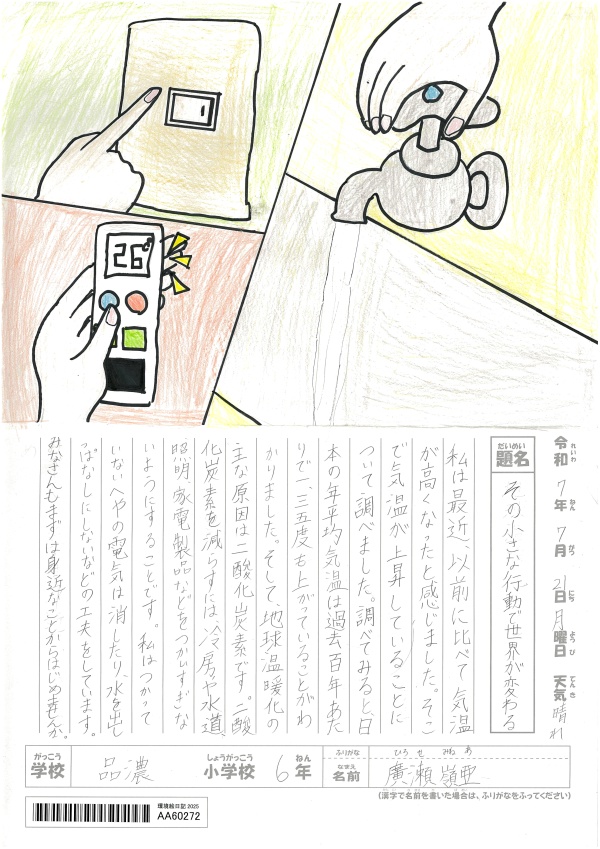 26℃
令和7年7月21日月曜日 天気晴れ
れいわ ねん がつ にち ようび てんき
だいめい
題名 その小さな行動で世界が変わる
私は最近、以前に比べて気温
が高くなったと感じました。そこ
で気温が上昇していることに
ついて調べました。調べてみると日
本の年平均気温は過去百年あた
りで一、三五度も上がっていることがわ
かりました。そして、地球温暖化の
主な原因は二酸化炭素です。二酸
化炭素を減らすには、冷房や水道、
照明、家電製品などをつかいすぎな
いようにすることです。私はつかって
いないへやの電気は消したり、水を出し
っぱなしにしないなどの工夫をしています。
みなさんもまずは身近なことからはじめませんか。
がっこう しょうがっこう ねん ふりがな ひろせ みねあ
学校 品濃 小学校 6年 なまえ 名前 廣瀬嶺亜
(漢字で名前を書いた場合は、ふりがなをふってください)
環境絵日記 2025
AA60272